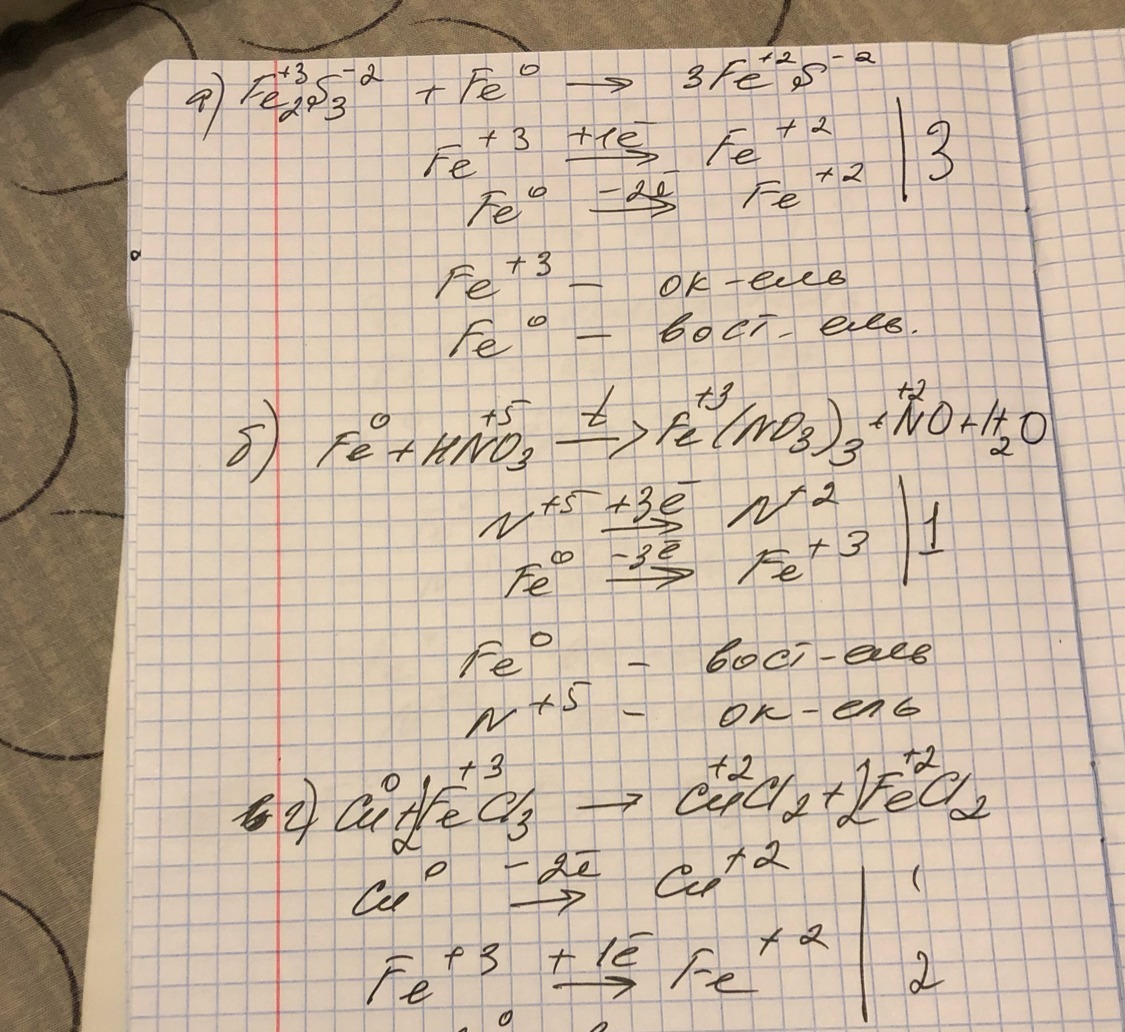 а) Fe₂⁺³S₃⁻² + Fe⁰ → 3Fe⁺²S⁻²
Fe⁺³ +1ē→ Fe⁺² | 3
Fe⁰ -2ē→ Fe⁺² |
Fe⁺³ – ок-ель
Fe⁰ – вост-ель.
б) Fe⁰ + HN⁺⁵O₃ t→ Fe⁺³(NO₃)₃ + N⁺²O + H₂O
N⁺⁵ +3ē→ N⁺² | 1
Fe⁰ -3ē→ Fe⁺³ |
Fe⁰ – вост-ель
N⁺⁵ – ок-ель
г) Cu⁰ + 2Fe⁺³Cl₃ → Cu⁺²Cl₂ + 2Fe⁺²Cl₂
Cu⁰ -2ē→ Cu⁺² | 1
Fe⁺³ +1ē→ Fe⁺² | 2